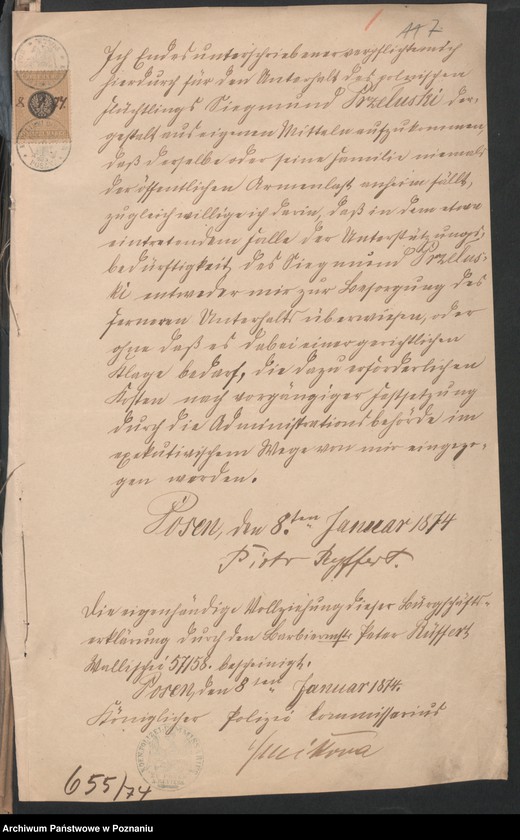 7
Ich Endesunterschriebener verpflichte mich
hierdurch für den Unterhalt des polnischen
Flüchtlings Siegmund Przeluski der-
gestalt aus eigenen Mitteln aufzukommen,
daß derselbe oder seine Familie niemals
der öffentlichen Armenlast anheim fällt,
zugleich willige ich darin, daß in dem etwa
eintretendem Falle der Unterstützungs-
bedürftigkeit des Siegmund Przelus-
ki entweder mir zur Besorgung des
ferneren Unterhalts überwiesen, oder
ohne daß es dabei einer gerichtlichen
Klage bedarf, die dazu erforderlichen
Kosten nach vorgängiger Festsetzung
durch die Administrationsbehörde im
exekutivischem Wege von mir eingezo-
gen werden.
Posen, den 8.ten Januar 1874
Piotr Ryffert.
Die eigenhändige Vollziehung dieser Bürgschafts-
erklärung durch den Barbier Peter Rüffert
Wallischei 57/58. bescheinigt.
Posen, den 8ten Januar 1874.
Königlicher Polizei Kommissarius
655/74
Archiwum Państwowe w Poznaniu
www.szukajwarchiwach.gov.pl